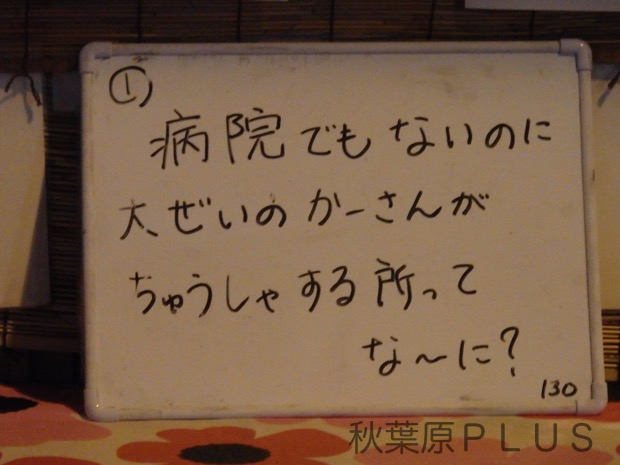 ①
病院でもないのに
大ぜいのかーさんが
ちゅうしゃする所って
な〜に?
130
秋葉原PLUS